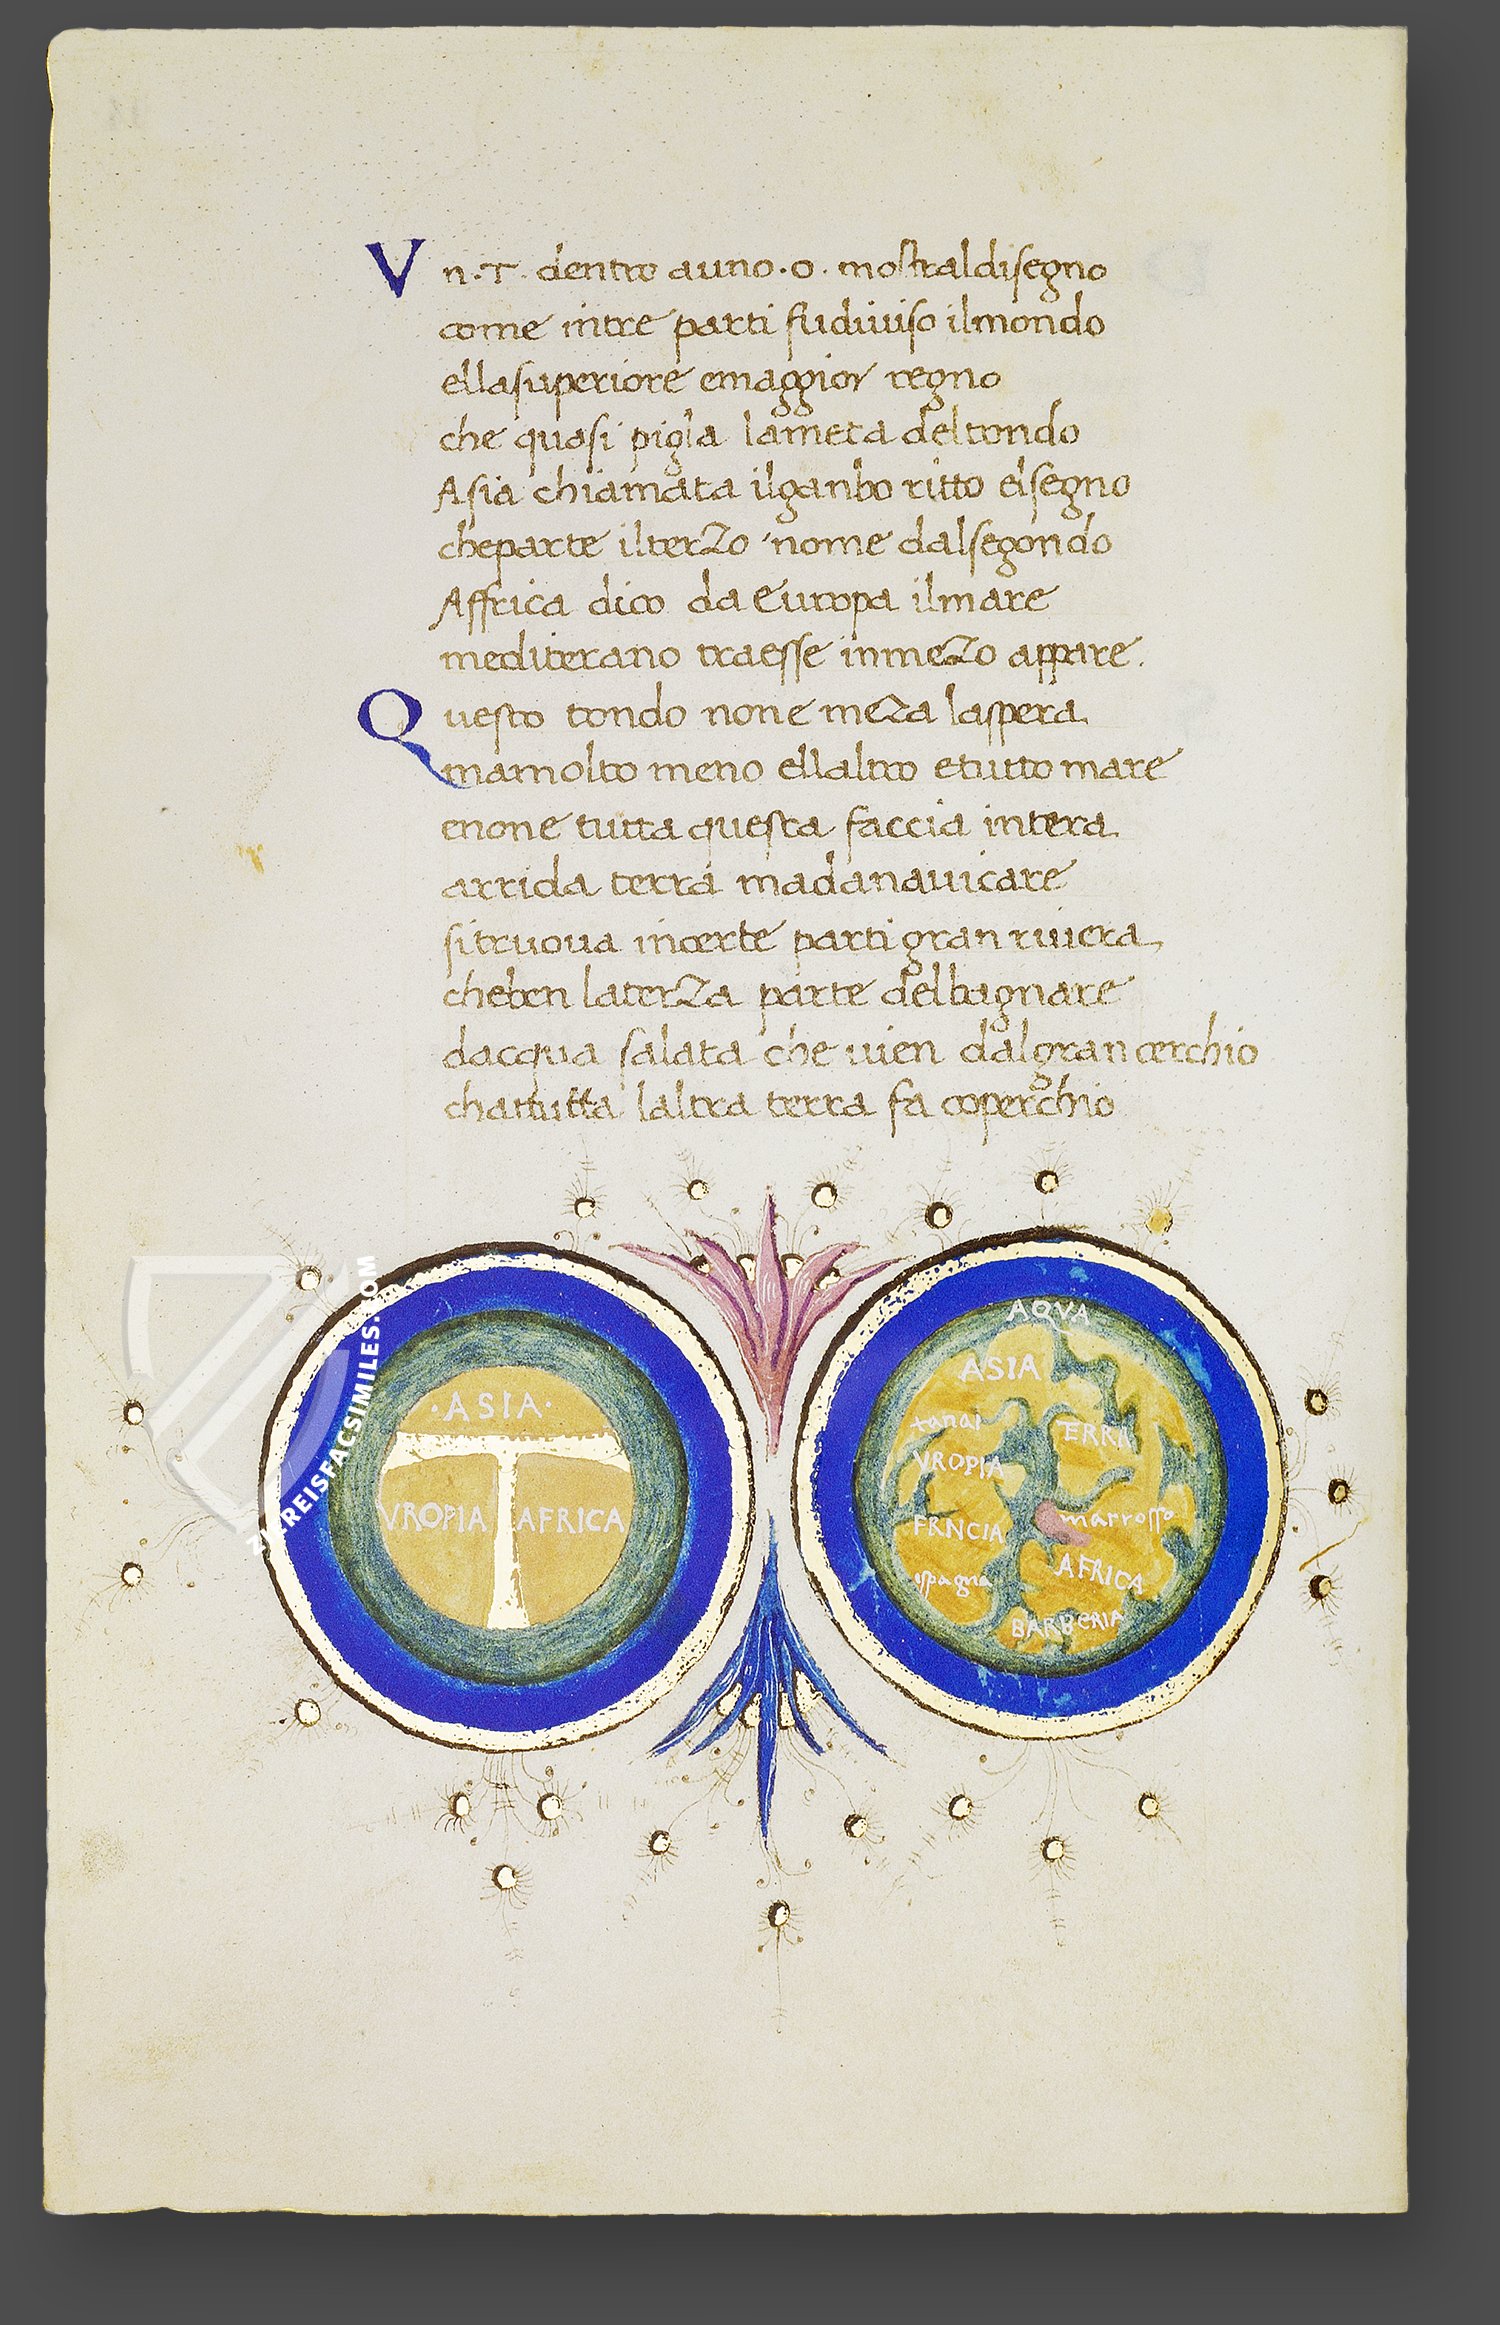 Vn.T. dentro auno.o. mostraldisegno
come intre parti fudiuiso ilmondo
ellasuperiore emaggior regno
che quasi pigla lameta deltondo
Asia chiamata ilganbo ritto elsegno
cheparte ilterzo nome dalsegondo
Affrica dico da Europa ilmare
mediterano traesse inmezo appare.
Questo tondo none meza laspera
mamolto meno ellaltro etutto mare
enone tutta questa faccia intera
arrida terra madanauicare
sitruoua incerte parti gran riuiera
cheben laterza parte delbagnare
dacqua salata che uien dalgran cerchio
chattutta laltra terra fa coperchio
·ASIA·
VROPIA AFRICA
AQVA
ASIA
tanai TERRA
VROPIA
FRNCIA marrosso
espagna AFRICA
BARBERIA
ZIEREISFACSIMILES.COM